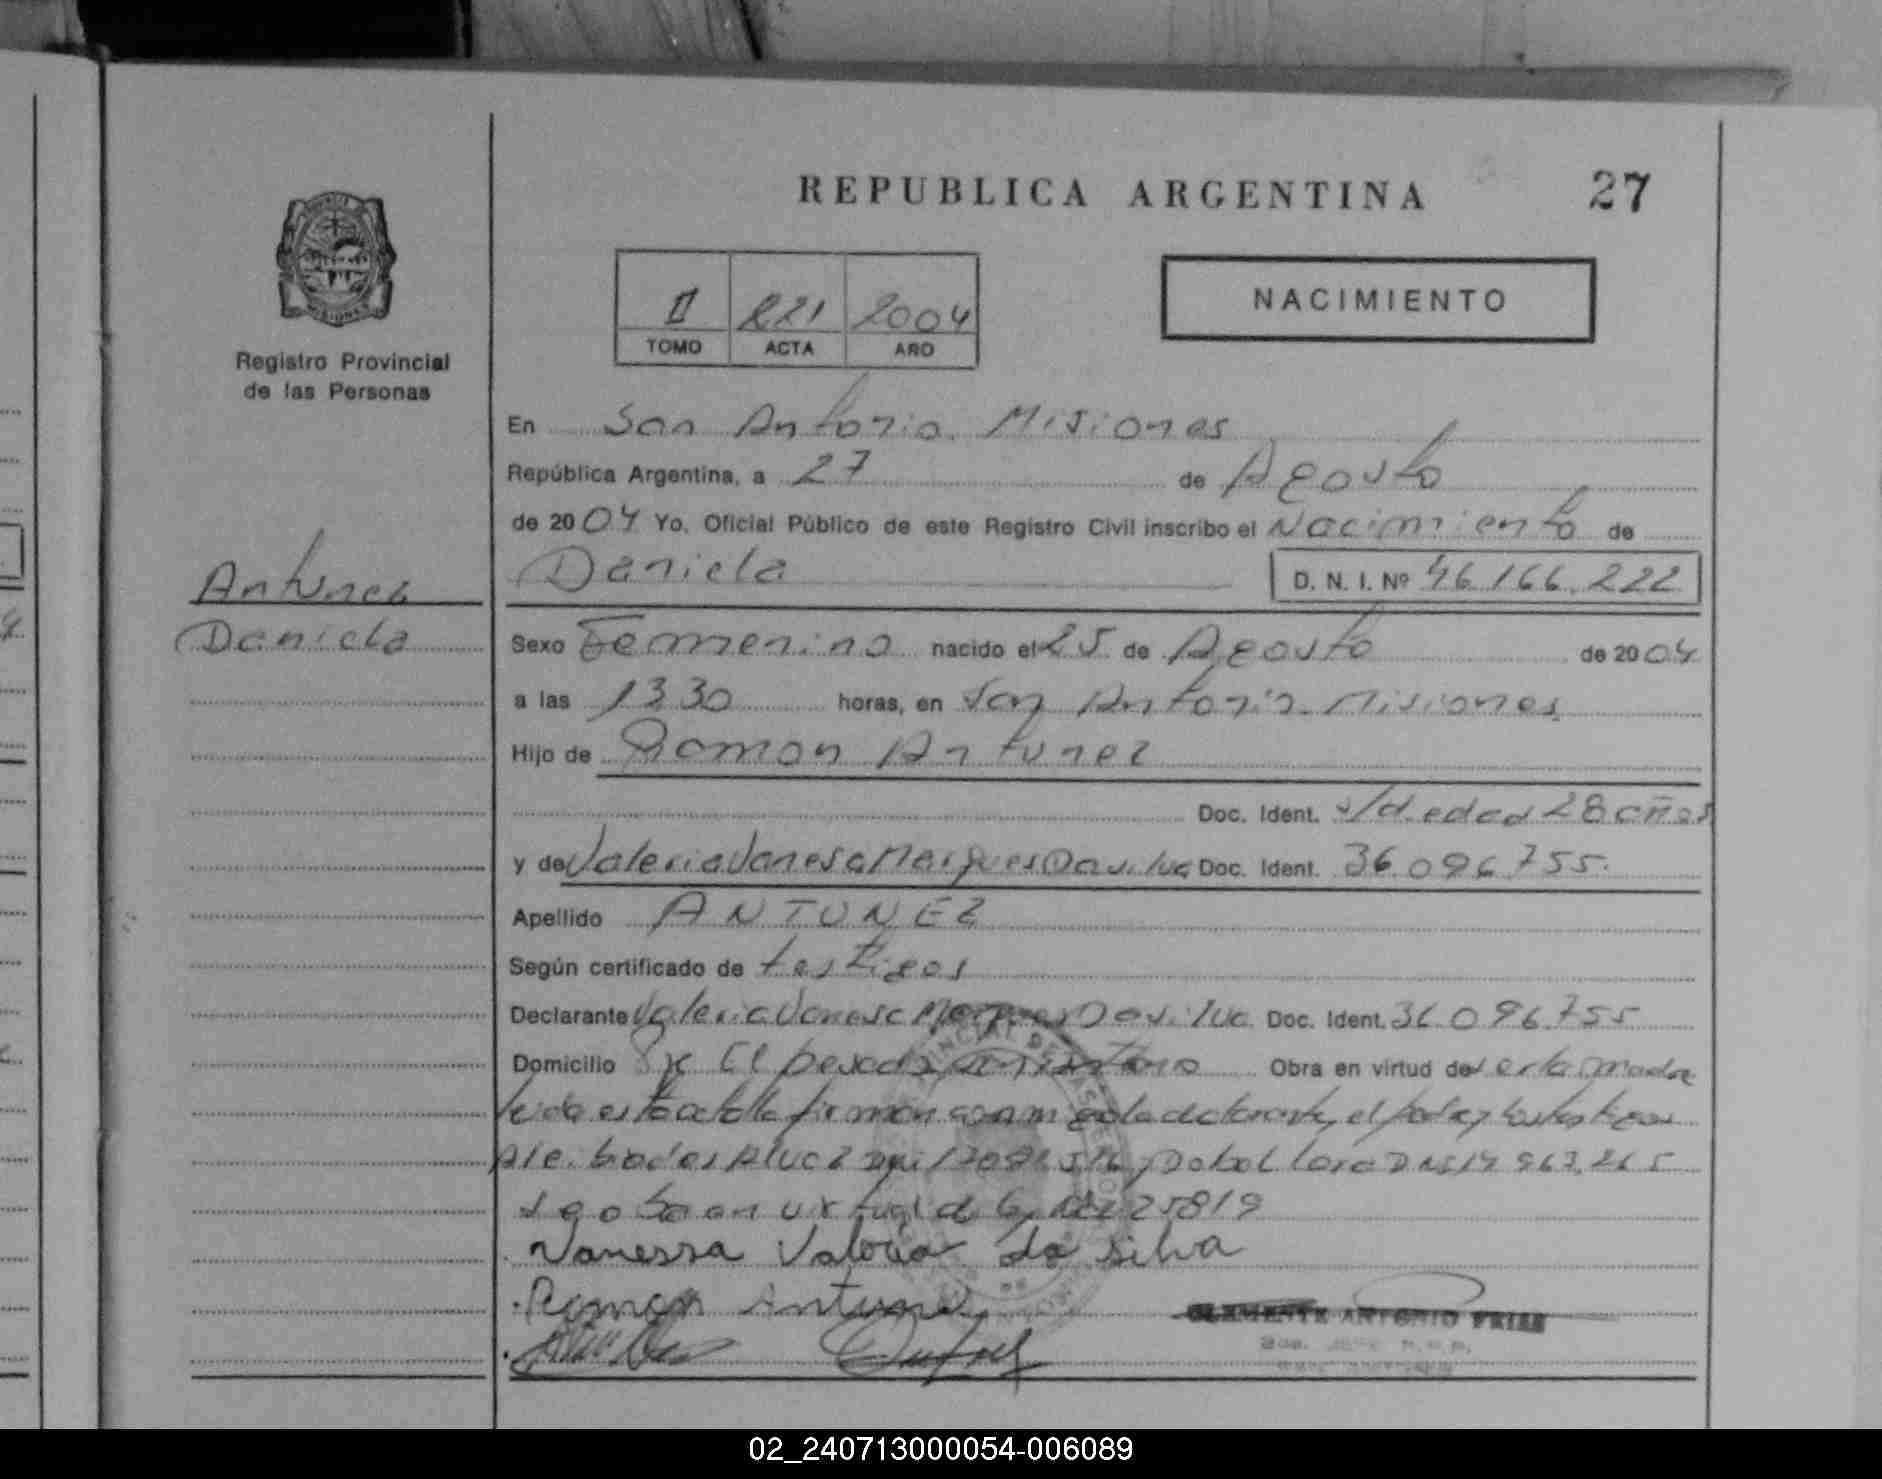 REPUBLICA ARGENTINA
27
Registro Provincial
de las Personas
II 221 2004
TOMO ACTA AÑO
NACIMIENTO
En San Antonio Misiones
República Argentina, a 27 de Agosto
de 2004 Yo, Oficial Público de este Registro Civil inscribo el Nacimiento de
Antunez
Daniela
Daniela D. N. I. Nº 46.166.222
Sexo Femenino nacido el 25 de Agosto de 2004
a las 13.30 horas, en San Antonio Misiones
Hijo de Ramon Antunez
Doc. Ident. s/d. edad 28 años
y de Valeria Vanesa Marques Da silva Doc. Ident. 36.096.755.
Apellido ANTUNEZ
Según certificado de testigos
Declarante Valeria Vanesa Marques Da silva Doc. Ident. 36.096.755
Domicilio El pesado San Antonio Obra en virtud de ser la madre
leida esta acta la firman conmigo la declarante, el padre y los testigos
DNI 14.963.265
25819
Vanessa Valeria da silva
Ramon Antunez
CLEMENTE ANTONIO FRIAS
02_240713000054-006089